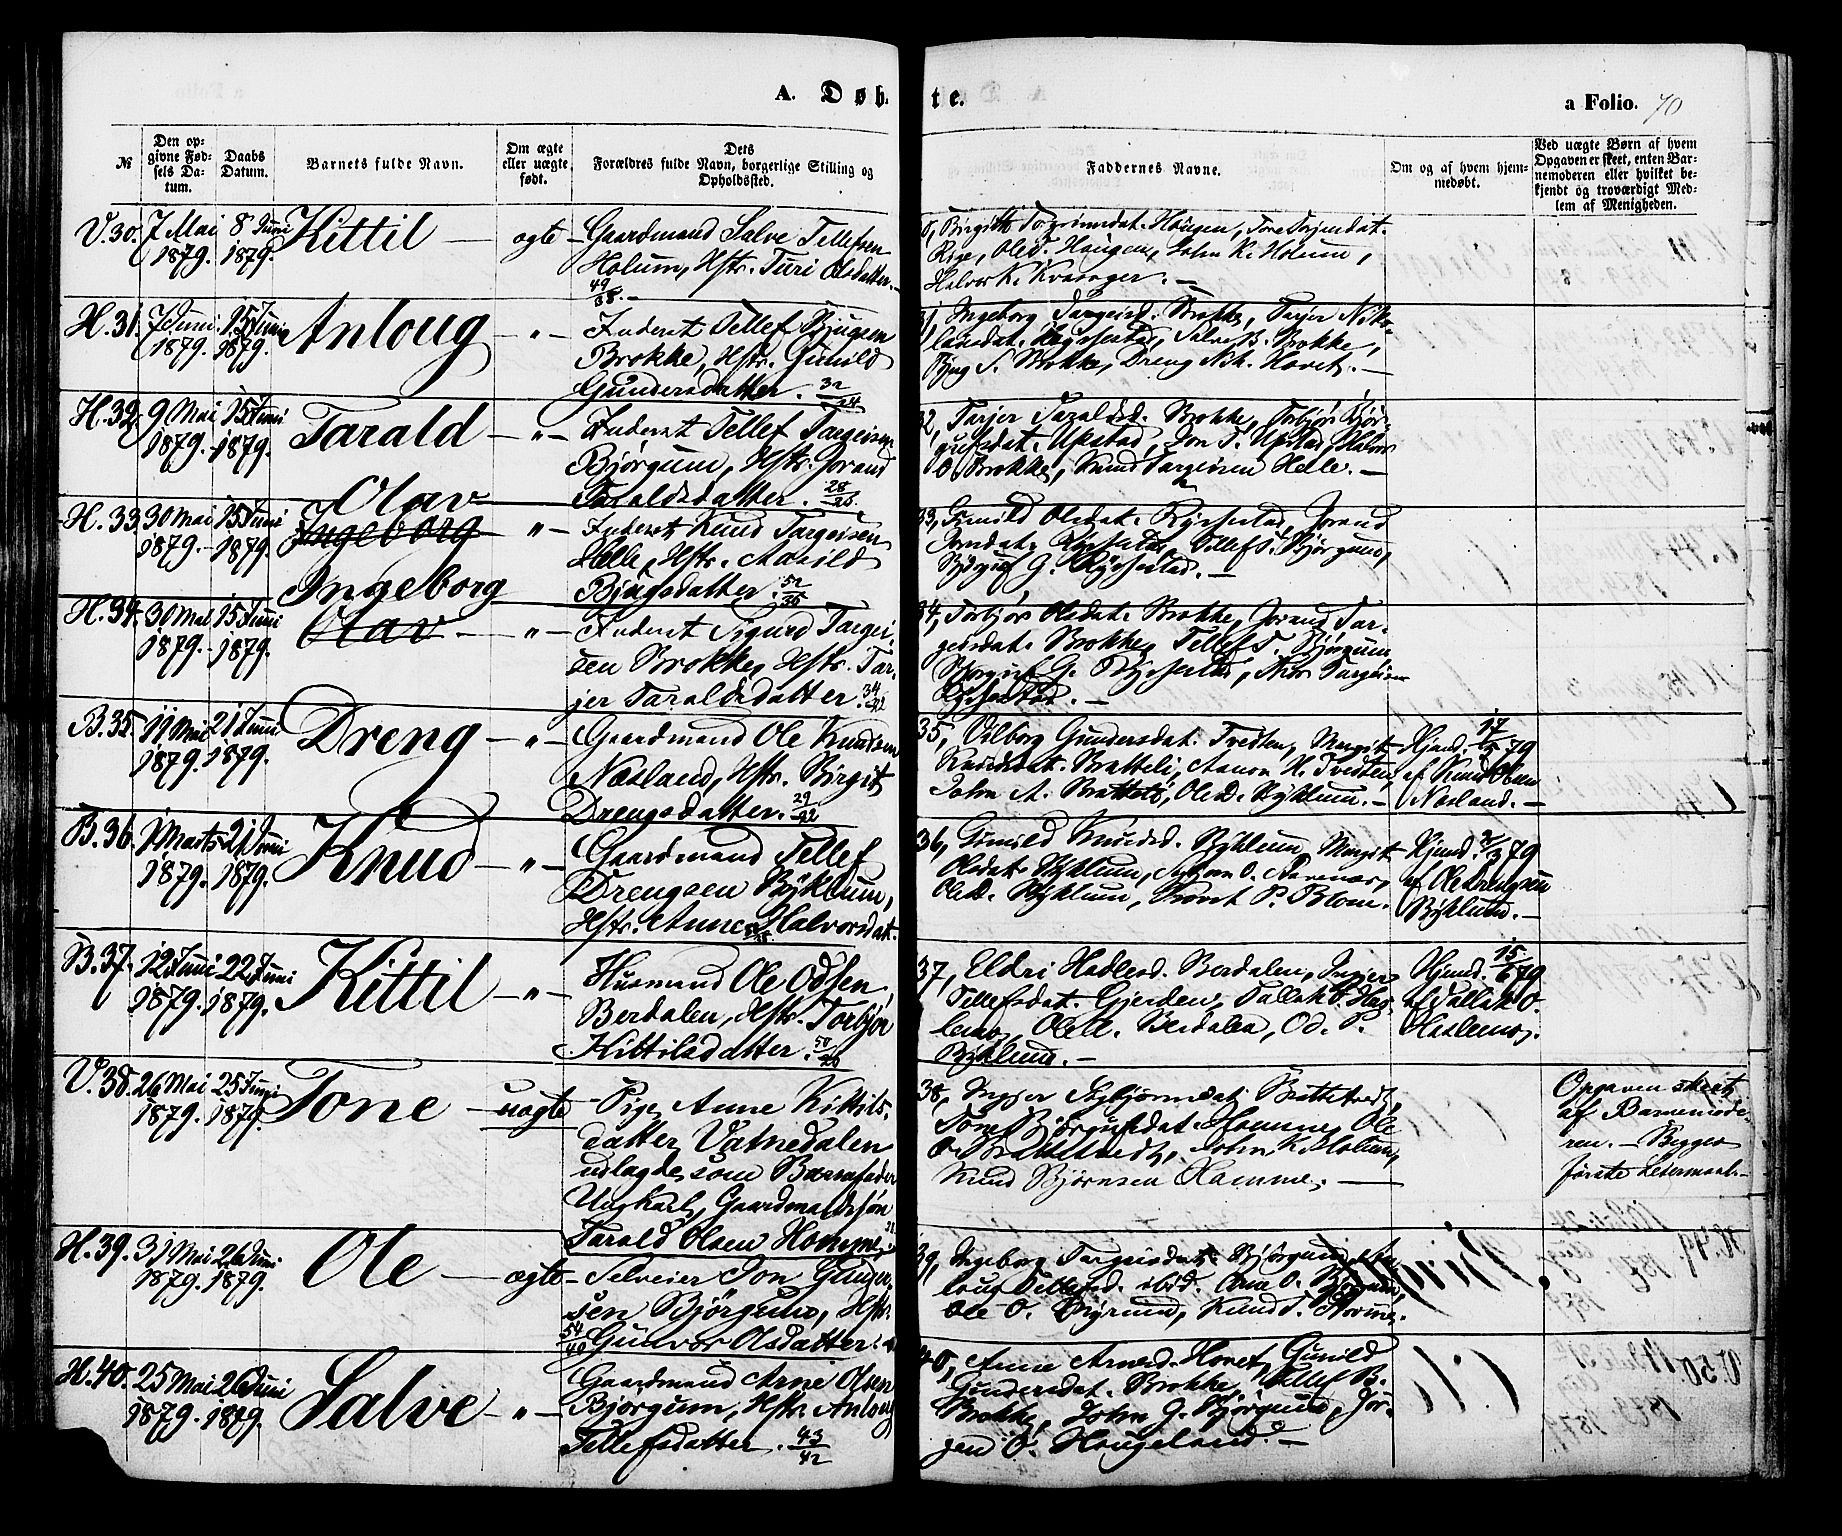 A. Døb- te.
a Folio. 70
№
Den opgivne Fødsels Datum.
Daabs Datum.
Barnets fulde Navn.
Om ægte eller uægte født.
Dets Forældres fulde Navn, borgerlige Stilling og Opholdssted.
Faddernes Navne.
Om og af hvem hjemmedøbt.
Ved uægte Børn af hvem Opgaven er skeet, enten Barnemoderen eller hvilket bekjendt og troværdigt Medlem af Menigheden.
V. 30. 7 Mai 1879. 8 Juni 1879. Kittil — ægte —
Gaardmand Salve Tellefsen
Holum, Hstr. Turi Olsdatter.
49/38. —
Birgitte Torgrimsdat. Haugen, Tone Torjusdat.
Rige, Ole d. Haugen, John K. Holum,
Halvor K. Kvasager. —
H. 31. 7 Juni 1879. 15 Juni 1879. Anloug — " —
Inderst Tellef Bjugsen
Brokke, Hstr. Gunild
Gundersdatter. 32/24
31, Ingeborg Targeisd. Brokke, Tarjer Niko-
laisdat. Rysestad, Salve B. Brokke,
Bjug S. Brokke, Dreng Nih. Hovet. —
H. 32. 9 Mai 1879. 15 Juni 1879. Tarald — " —
Inderst Tellef Targeisen
Bjørgum, Hstr. Jorand
Taraldsdatter. 28/26.
32, Tarjer Taraldsd. Brokke, Torbjør Bjør-
gufsdat. Upstad, Jon T. Upstad, Halvor
O. Brokke, Knud Targeisen Helle. —
H. 33. 30 Mai 1879. 15 Juni 1879. Olav
Ingeborg — " —
Inderst Knud Targeisen
Helle, Hstr. Aasild
Bjugsdatter. 52/36
33, Gunild Olsdat. Rysestad, Jorand
Jonsdat. Rysestad, Tellef T. Bjørgum,
Bjørguf G. Rysestad. —
H. 34. 30 Mai 1879. 15 Juni 1879. Ingeborg
Olav — " —
Inderst Sigurd Targei-
sen Brokke, Hstr. Tar-
jer Taraldsdatter. 34/22
34, Torbjør Olsdat. Brokke, Jorand Tar-
geisdat. Brokke, Tellef T. Bjørgum
Bjørguf G. Rysestad, Targeisen
Rysestad. —
B. 35. 11 Mai 1879. 21 Juni 1879. Dreng — " —
Gaardmand Ole Knudsen
Næsland, Hstr. Birgit
Drengsdatter. 29/22
35, Vilborg Gundersdat. Tvedten, Margit
Knudsdat. Bratteli, Aanon H. Tvedten,
John A. Bratteli, Ole D. Byklum. —
Hjemd. 17/5 79
af Knud Olsen
Næsland. —
B. 36. 1 Marts 1879. 21 Juni 1879. Knud — " —
Gaardmand Tellef
Drengsen Byklum,
Hstr. Anne Halvorsdat.
36, Gunild Knudsd. Byklum, Margit
Olsdat. Byklum, O.
Ole D. Byklum, Knut P. Blom.
Hjemd. 2/3 79
af Ole Drengsen
Byklum. —
B. 37. 12 Juni 1879. 22 Juni 1879. Kittil — " —
Husmand Ole Odsen
Berdalen, Hstr. Torbjør
Kittilsdatter. 50/26
37, Eldri Hadlesd. Berdalen, Ingjer
Tellefsdat. Gjerden, Tallak O. Has-
lemo, Ole A. Berdalen, Od. P.
Byklum. —
Hjemd. 15/6 79
af Tallak O.
Haslemo.
V. 38. 26 Mai 1879. 25 Juni 1879. Tone — uægte
Pige Anne Kittils-
datter Vatnedalen
udlagde som Barnefader
Ungkarl, Gaardmandssøn
Tarald Olsen Homme,
38, Ingjer Asbjørnsdat. Brattetvedt,
Tone Bjørgufsdat. Homme, Ole
O. Brattetvedt, John K. Holum,
Knud Bjørnsen Homme. —
Opgaven skeet
af Barnemode-
ren. — Begges
første Leiermaal.
H. 39. 31 Mai 1879. 26 Juni 1879. Ole — ægte —
Selveier Jon Gunder-
sen Bjørgum, Hstr.
54/40 Gunvor Olsdatter.
39, Ingeborg Targeisdat. Bjørgum, An-
loug Tellefsd. ibid. Arne O. Bjørgum,
Ole O. Myrum, Knud T. Homme.
H. 40. 25 Mai 1879. 26 Juni 1879. Salve — " —
Gaardmand Arne Olsen
Bjørgum, Hstr. Anloug
Tellefsdatter. 43/42
40, Anne Arnesd. Hovet, Gunild
Gundersdat. Brokke, Tellef B.
Brokke, John G. Bjørgum, Jør-
gen O. Haugeland. —